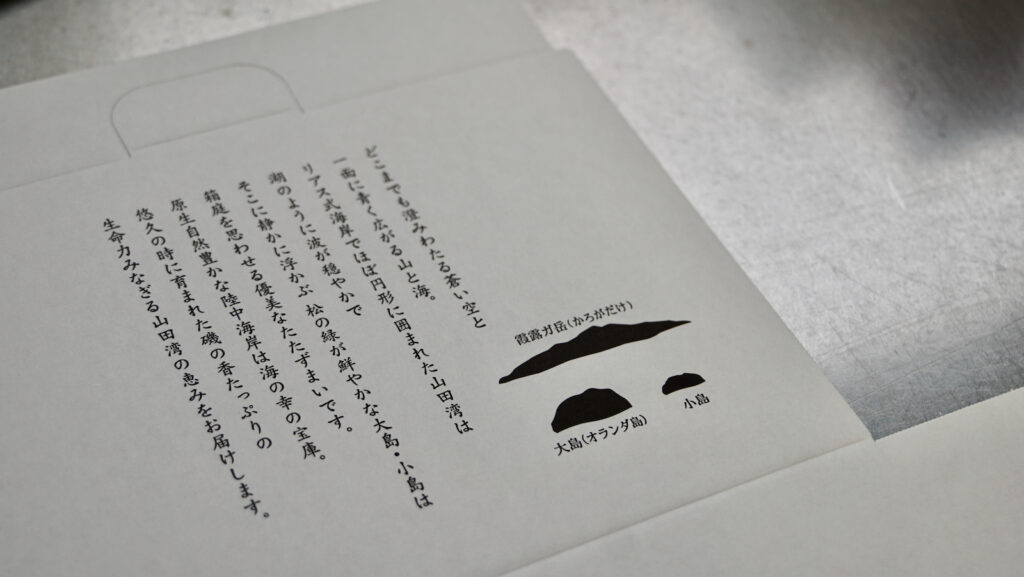 どこまでも澄みわたる蒼い空と
一面に青く広がる山と海。
リアス式海岸でほぼ円形に囲まれた山田湾は
湖のように波が穏やかで
そこに静かに浮かぶ 松の緑が鮮やかな大島・小島は
箱庭を思わせる優美なたたずまいです。
原生自然豊かな陸中海岸は海の幸の宝庫。
悠久の時に育まれた磯の香たっぷりの
生命力みなぎる山田湾の恵みをお届けします。
霞露ガ岳(かろがだけ)
大島(オランダ島)
小島